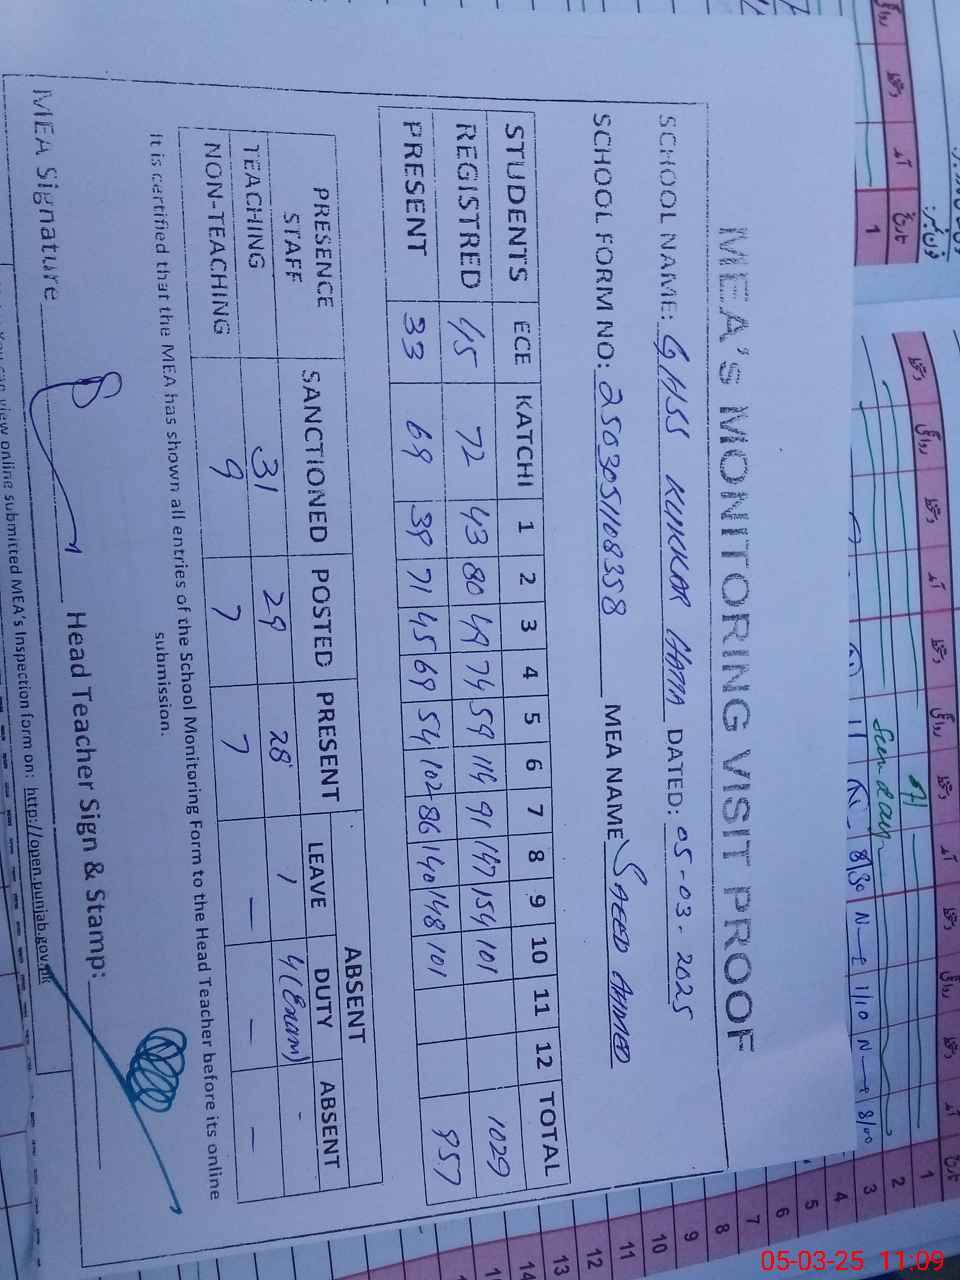 MEA'S MONITORING VISIT PROOF
SCHOOL NAME: GHSS KUKKAR HATTA DATED: 05-03-2025
SCHOOL FORM NO: 2503051108358 MEA NAME SAEED AHMED
STUDENTS ECE KATCHI 1 2 3 4 5 6 7 8 9 10 11 12 TOTAL
REGISTRED 45 72 43 80 49 74 59 114 91 147 154 101 1029
PRESENT 33 69 39 71 45 69 54 102 86 140 148 101 957
PRESENCE STAFF SANCTIONED POSTED PRESENT ABSENT
LEAVE DUTY ABSENT
TEACHING 31 29 28 1 4(Exam) -
NON-TEACHING 9 7 7 - - -
It is certified that the MEA has shown all entries of the School Monitoring Form to the Head Teacher before its online
submission.
MEA Signature Head Teacher Sign & Stamp:
You can view online submitted MEA's Inspection form on: http://open.punjab.gov.pk
Sunday
8/30 N 1/10 N 8/00
تاریخ آمد دستخط روانگی دستخط آمد دستخط روانگی دستخط
1
2
3
4
5
6
7
8
9
10
11
12
13
14
فون نمبر:
تاریخ آمد دستخط روانگی
1
05-03-25 11:09